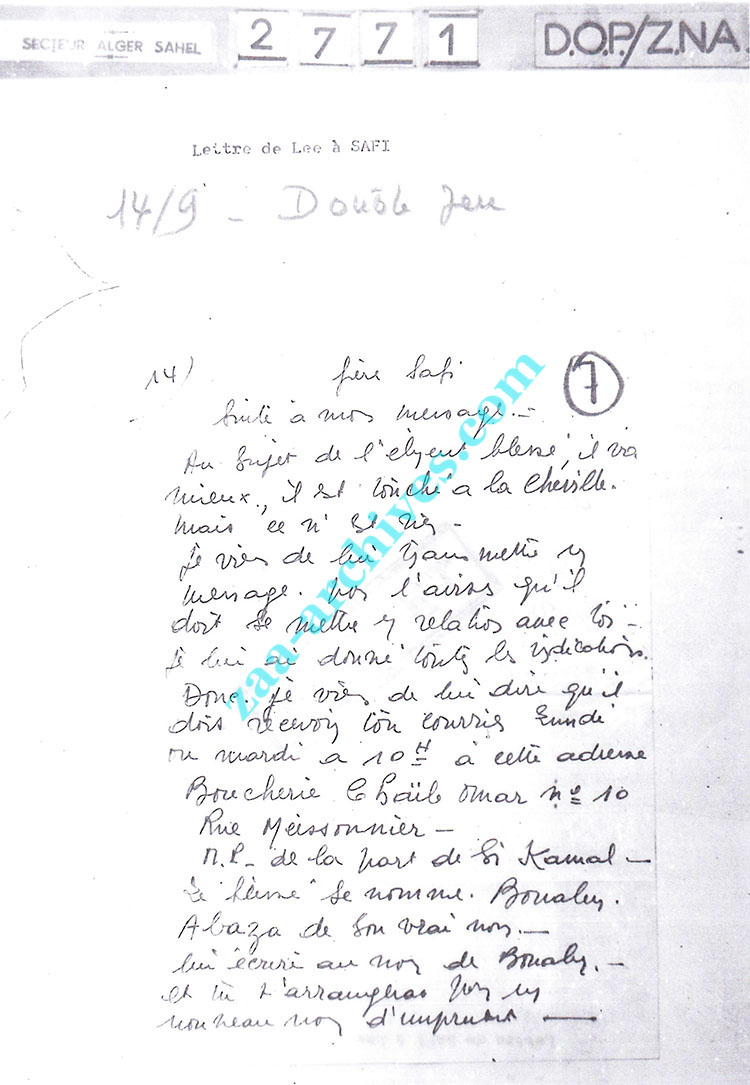 SECTEUR ALGER SAHEL
2 7 7 1
D.O.P./Z.NA
Lettre de Lee à SAFI
14/9 - Double Jeu
14)
frère Safi
7
Suite à mon message.-
Au sujet de l'élément blessé, il va
mieux, il est touché a la cheville.
mais ce n'est rien -
je viens de lui transmettre un
message. pour l'aviser qu'il
doit se mettre en relation avec toi -
je lui ai donné toutes les indications.
Donc je viens de lui dire qu'il
dois recevoir ton courrier Lundi
ou mardi a 10H à cette adresse
Boucherie Chaïb Omar nº 10
Rue Meissonnier -
M.P. de la part de Si Kamal -
se nomme. Boualem.
Abaza de son vrai nom. -
lui écrire au nom de Boualem. -
et tu t'arrangeras pour un
nouveau nom d'emprunt -
zaa-archives.com